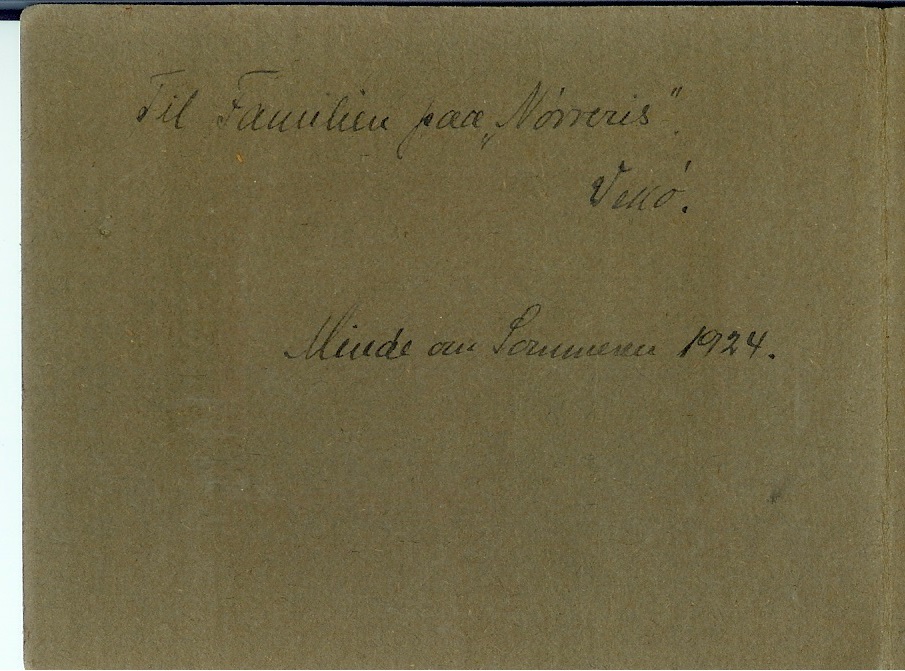 Til Familien paa „Nørreris”.
Vejrø.
Minde om Sommeren 1924.